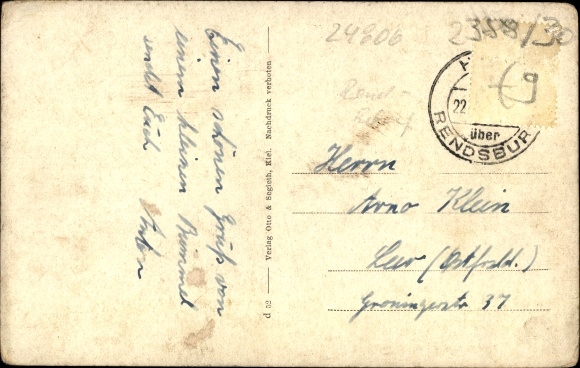 Einen schönen Gruß von
einem kleinen Bummel
sendet Euch
d 52 — Verlag Otto & Segieth, Kiel. Nachdruck verboten —
24806
2388/30
22.
über
RENDSBUR
Herrn
Arno Klein
Leer (Ostfriesld.)
Groningerstr 37